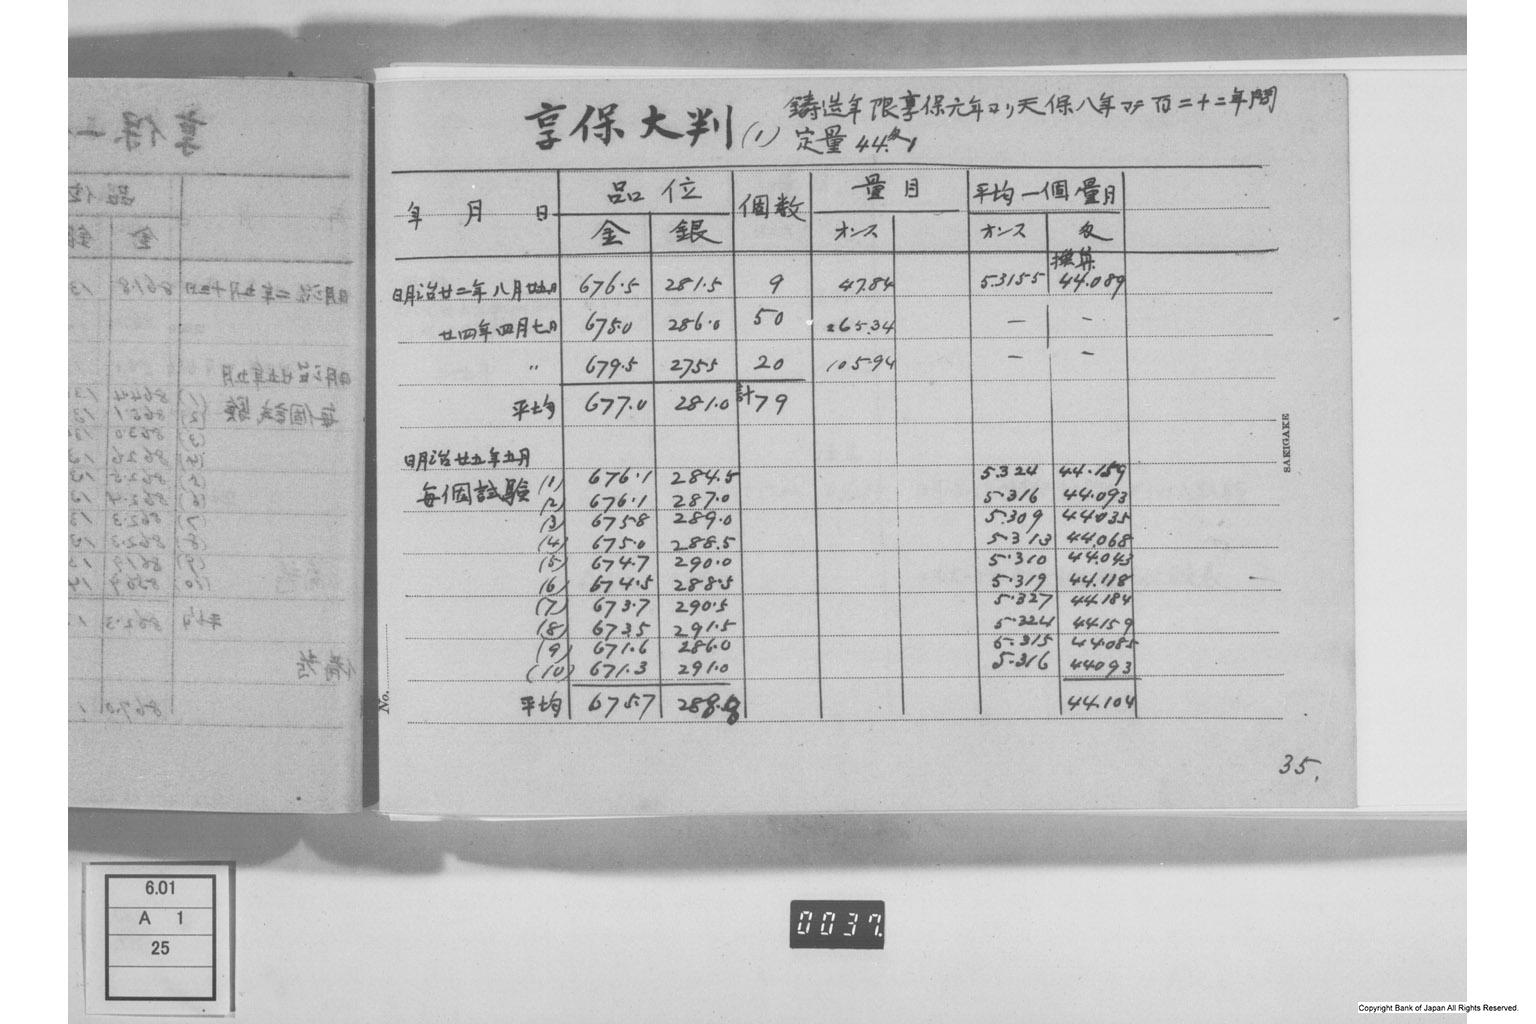 享保大判 (1)
鋳造年限享保六年ヨリ天保八年マデ百二十二年間
定量 44.匁1
年 月 日 品位 個数 量目 平均一個量目
金 銀 オンス オンス 匁
換算
明治廿二年八月廿五日 676.5 281.5 9 47.84 5.3155 44.089
廿四年四月七日 675.0 286.0 50 265.34 — —
〃 679.5 275.5 20 105.94 — —
平均 677.0 281.0 計79
明治廿五年五月
毎個試験 (1) 676.1 284.5 5.324 44.159
(2) 676.1 287.0 5.316 44.093
(3) 675.8 289.0 5.309 44.035
(4) 675.0 288.5 5.313 44.068
(5) 674.7 290.0 5.310 44.043
(6) 674.5 288.5 5.319 44.118
(7) 673.7 290.5 5.327 44.184
(8) 673.5 291.5 5.324 44.159
(9) 671.6 286.0 5.315 44.085
(10) 671.3 291.0 5.316 44.093
平均 675.7 288.8 44.104
No.
SAKIGAKE
35.
6.01
A 1
25
0037.
Copyright Bank of Japan All Rights Reserved.